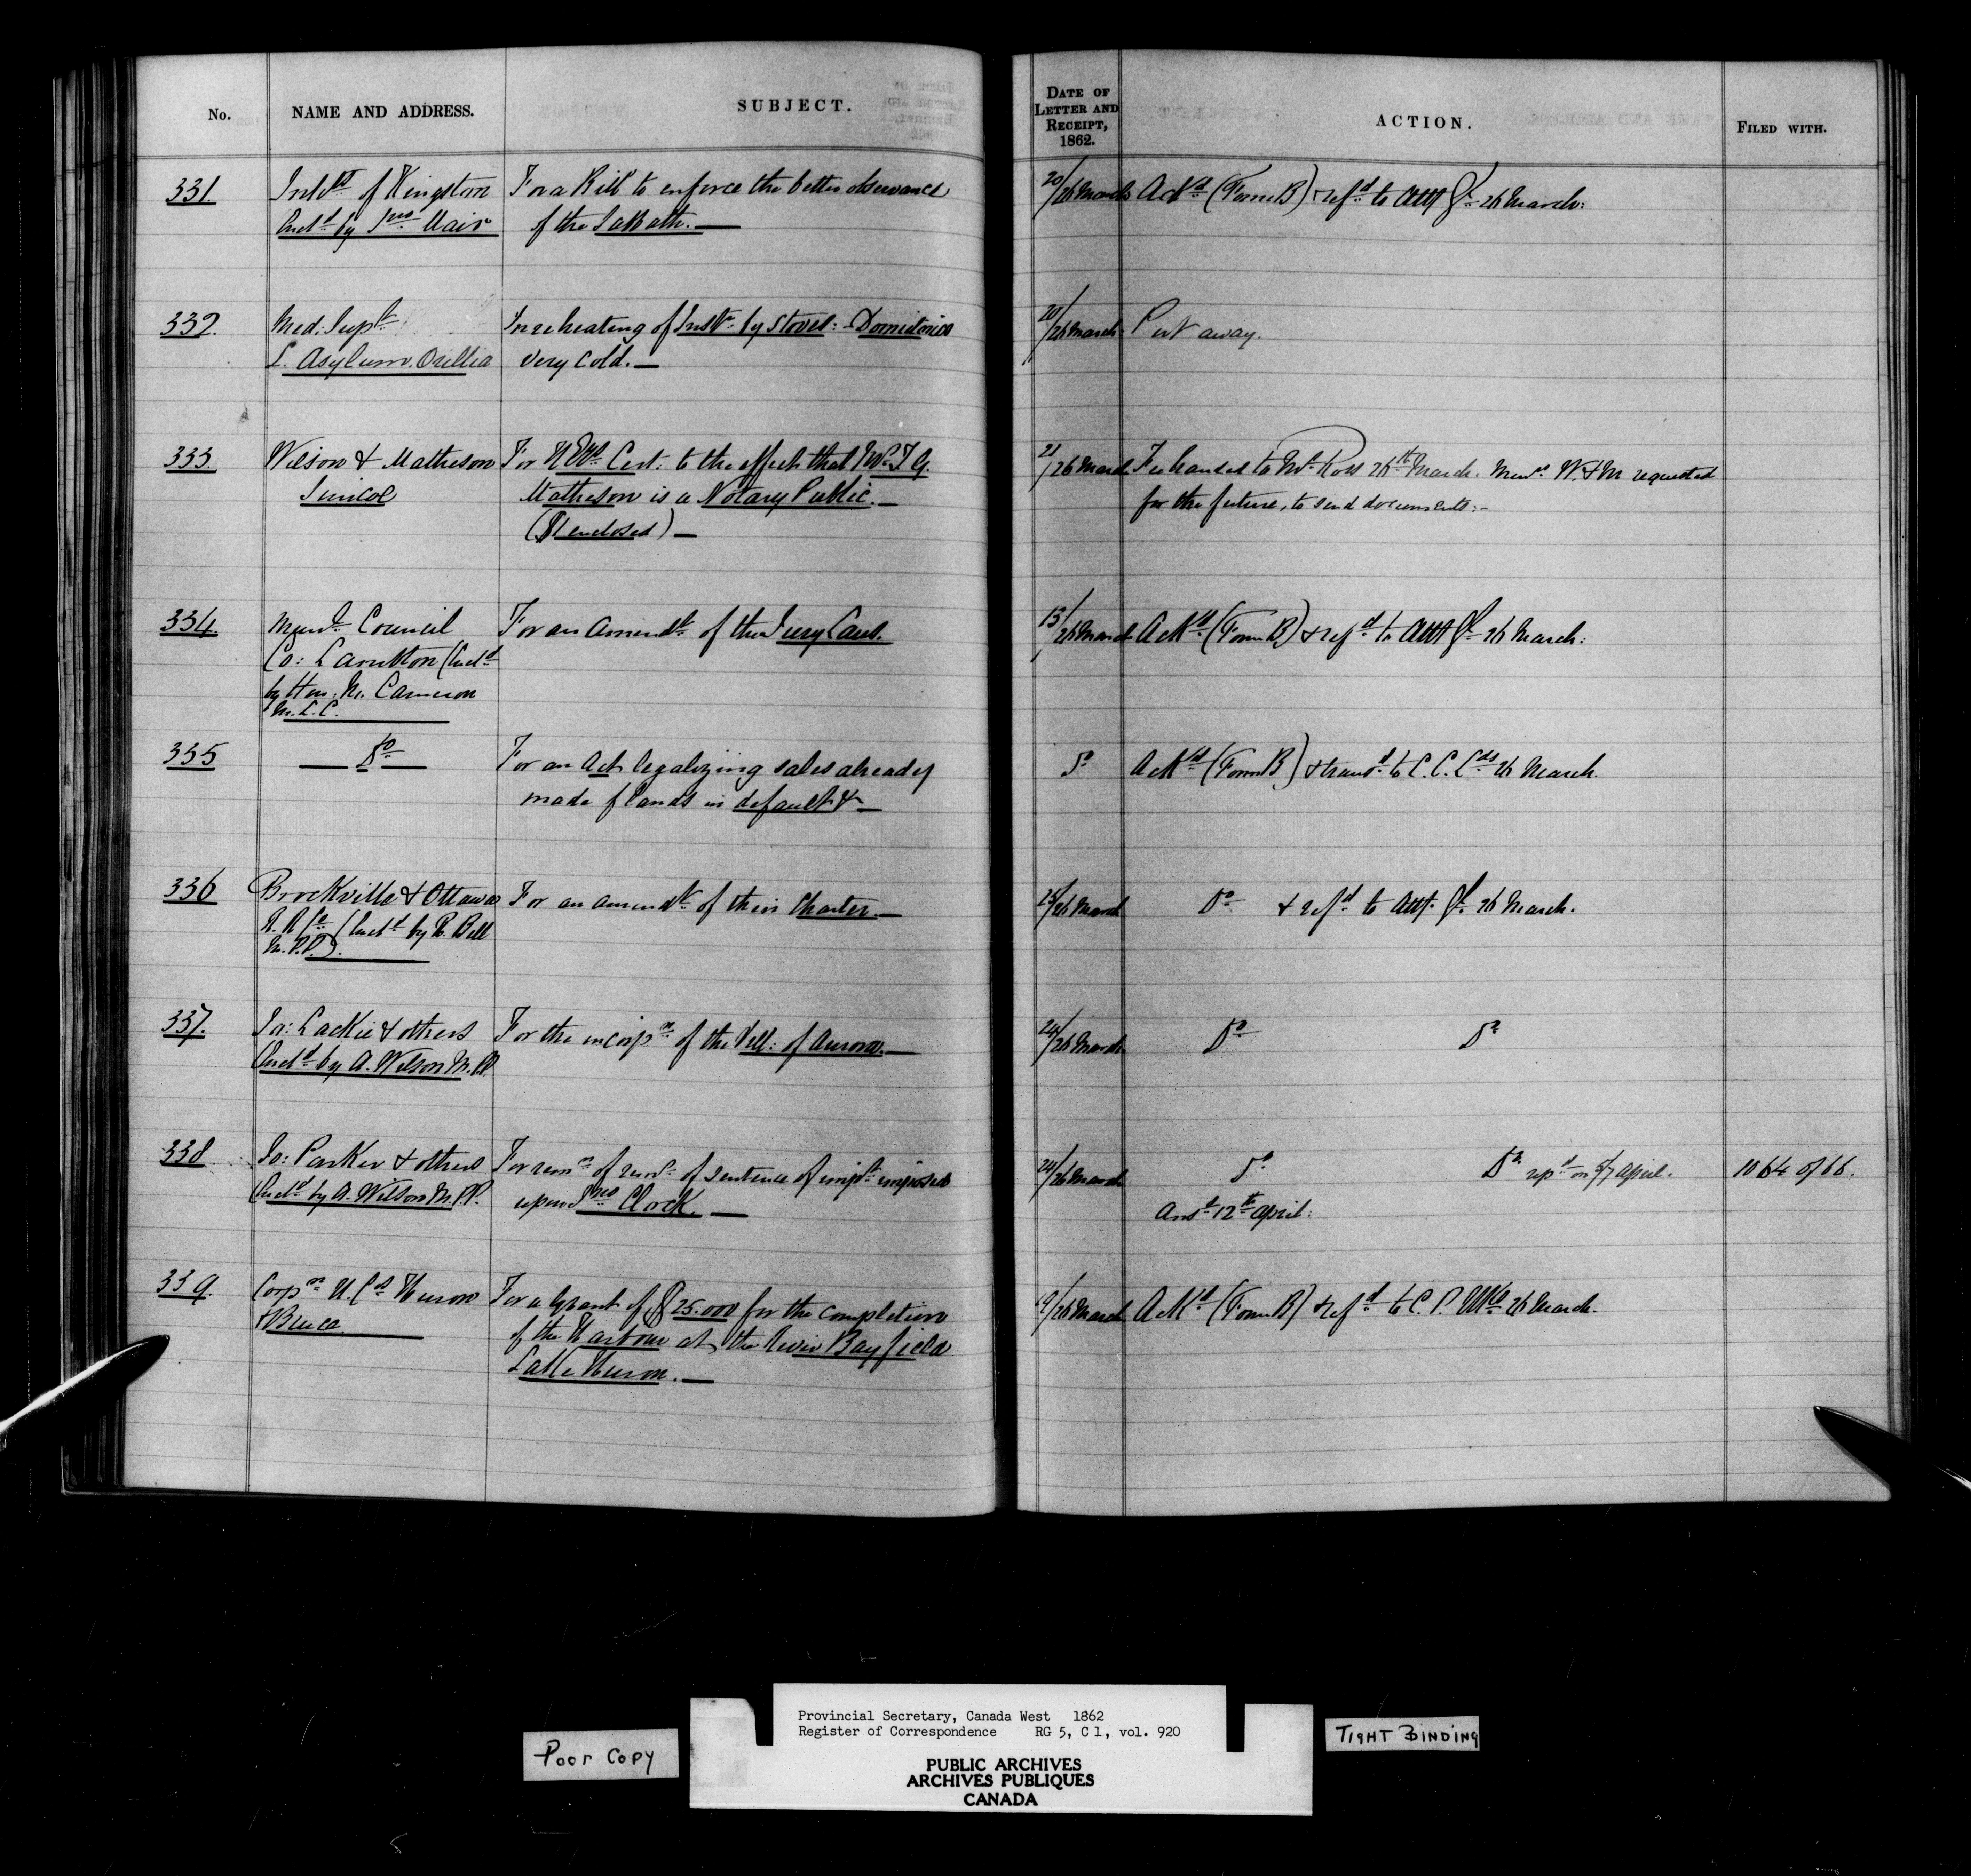 No.
NAME AND ADDRESS.
SUBJECT.
DATE OF LETTER AND RECEIPT, 1862.
ACTION.
FILED WITH.
331.
Inhbts of Kingston
Encd by Jno Mair
For a Bill to enforce the better observance
of the Sabbath. —
20/26 March
Ackd (Form B) & refd to Atty Gl 26 March:
332.
Med: Supt
L. Asylum. Orillia
In re heating of Instn by stoves: - Dormitories
very cold. —
20/26 March
Put away.
333.
Wilson & Matheson
Simcoe
For Cert: to the effect that Mr T. G.
Matheson is a Notary Public. —
($1 enclosed) —
21/26 March
Fee handed to Mr Ross 26th March. Messrs. W. & M requested
for the future, to send documents: -
334.
Municl Council
Co: Lambton (Encd
by Hon. M. Cameron
M. L. C.
For an Amendt of the Jury Laws.
13/26 March
Ackd (Form B) & refd to Atty Gl 26 March:
335
— Do —
For an Act legalizing sales already
made of lands in default &c —
Do
Ackd (Form B) & transd to C. C. Lds 26 March.
336
Brockville & Ottawa
R. R Co (Encd by R. Bell
M.P.P.).
For an amendt of their Charter. —
25/26 March
Do & refd to Atty. Gl. 26 March.
337.
Jas: Lackie & others
(Encd by A. Wilson M.P.P.
For the incorpn of the Vill: of Aurora. —
24/26 March
Do Do
338
Jas: Parker & others
(Encd by A. Wilson M.P.P.
For remn of remr of sentence of impt imposed
upon Jno Clock. —
24/26 March
Do Do repd on 7 April.
1064 of 66.
Ansd 12th April:
339.
Corpn U. Cos Huron
& Bruce.
For a Grant of $25.000 for the completion
of the Harbour at the River Bayfield
Lake Huron. —
19/26 March
Ackd (Form B) & refd to C. P. Wks 26 March.
Provincial Secretary, Canada West 1862
Register of Correspondence RG 5, C 1, vol. 920
Poor Copy
TIGHT BINDING
PUBLIC ARCHIVES
ARCHIVES PUBLIQUES
CANADA